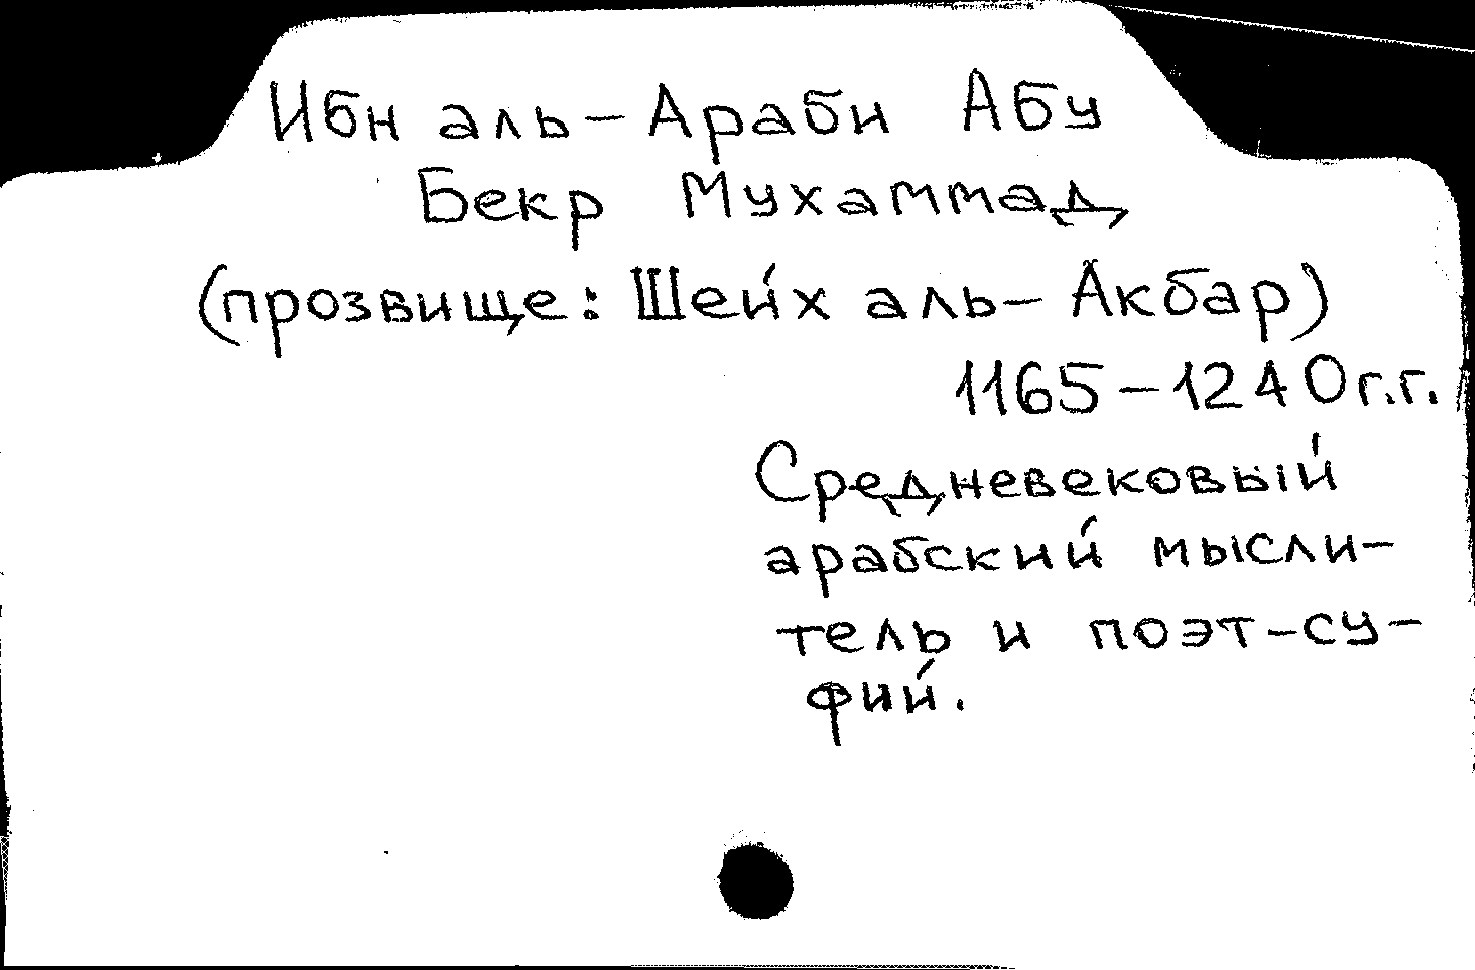 Ибн аль-Араби Абу
Бекр Мухаммад
(прозвище: Шейх аль-Акбар)
1165-1240г.г.
Средневековый
арабский мысли-
тель и поэт-су-
фий.